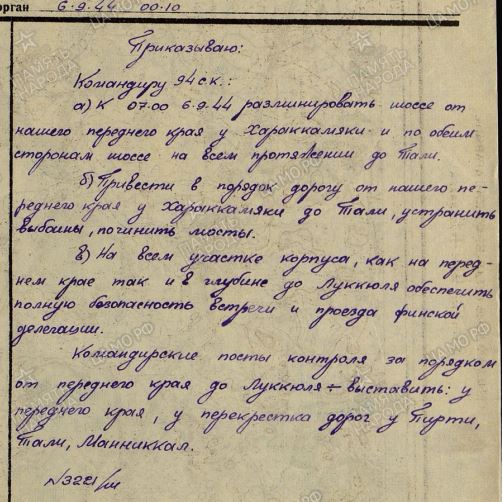 орган 6.9.44 00.10
Приказываю:
Командиру 94 ск.:
а) К 07.00 6.9.44 разминировать шоссе от
нашего переднего края у Хараккамяки и по обеим
сторонам шоссе на всем протяжении до Тали.
б) Привести в порядок дорогу от нашего пе-
реднего края у Хараккамяки до Тали, устранить
выбоины, починить мосты.
в) На всем участке корпуса, как на перед-
нем крае так и в глубине до Луккюля обеспечить
полную безопасность встречи и проезда финской
делегации.
Командирские посты контроля за порядком
от переднего края до Луккюля – выставить: у
переднего края, у перекрестка дорог у Пирти,
Тали, Манниккал.
№3221/ш
ПАМЯТЬ НАРОДА
ЦАМО.РФ